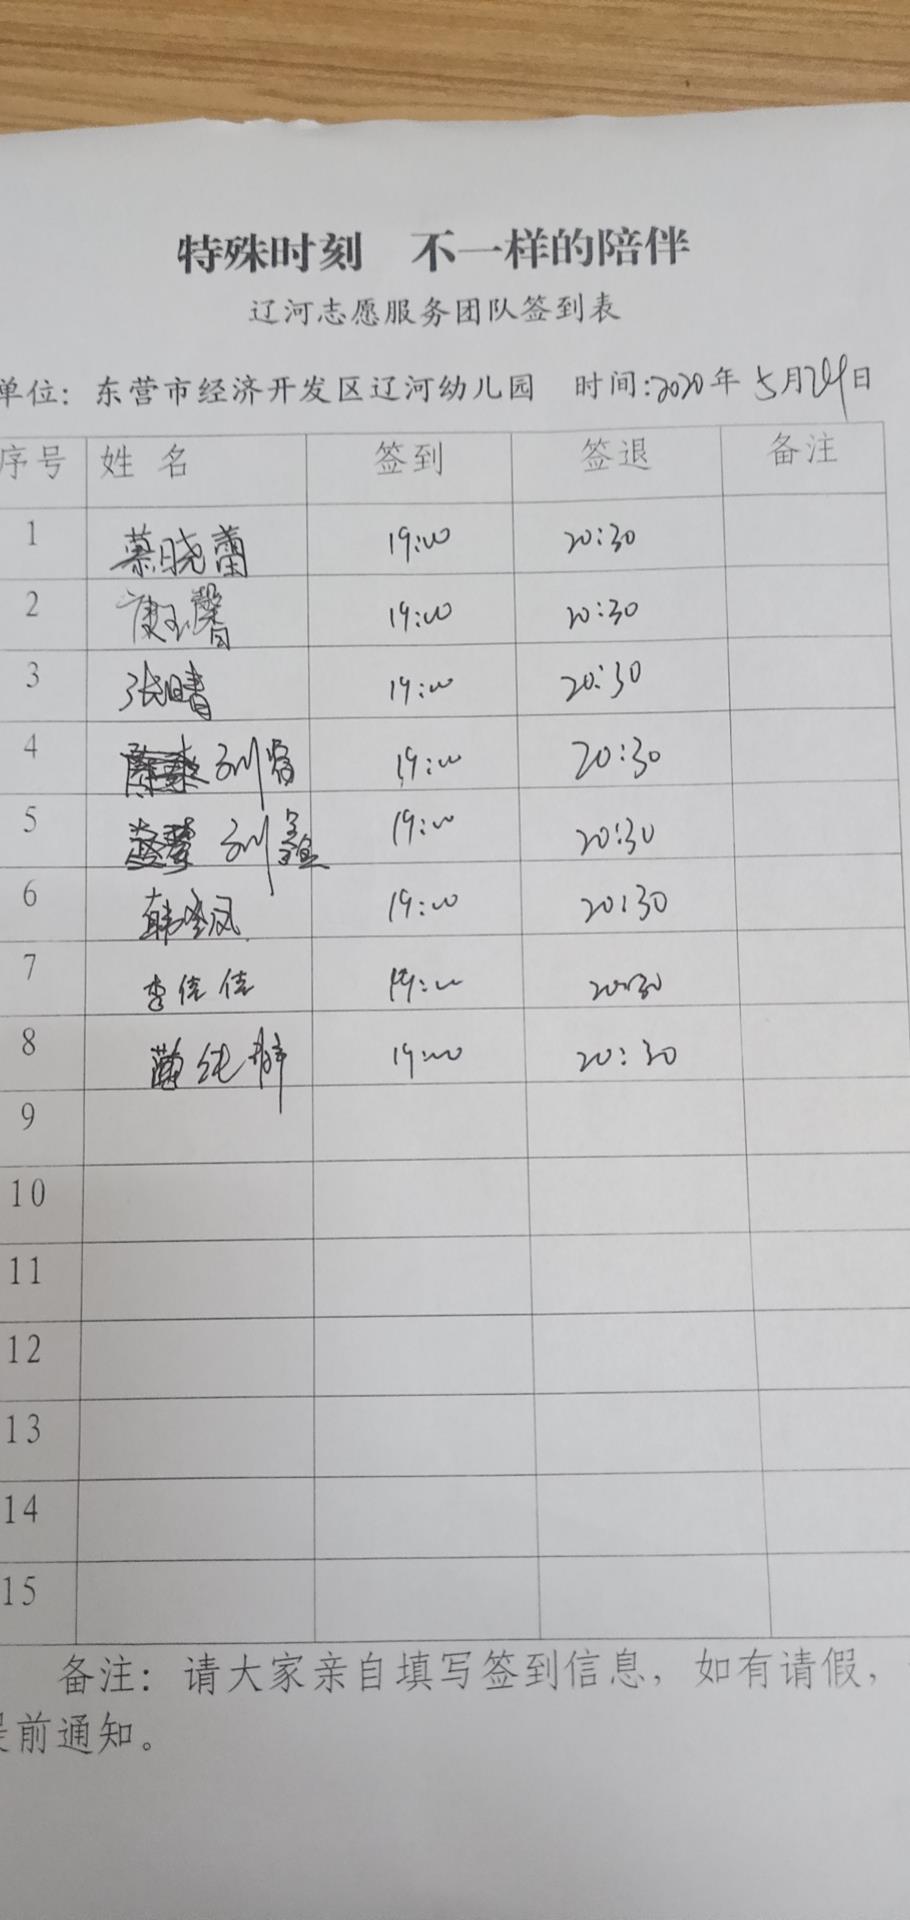 特殊时刻 不一样的陪伴
辽河志愿服务团队签到表
单位：东营市经济开发区辽河幼儿园 时间：2020年5月24日
序号 姓名 签到 签退 备注
1 慕晓蕾 19:00 20:30
2 康玉馨 19:00 20:30
3 张晴 19:00 20:30
4 19:00 20:30
5 19:00 20:30
6 韩 凤 19:00 20:30
7 李佳佳 19:00 20:30
8 纯 19:00 20:30
9
10
11
12
13
14
15
备注：请大家亲自填写签到信息，如有请假，
前通知。